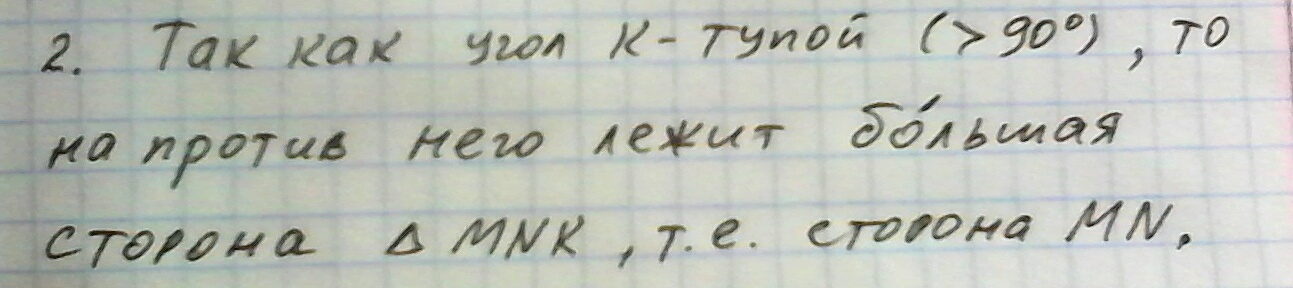 2. Так как угол К - тупой (>90°), то
на против него лежит бо́льшая
сторона Δ MNK, т.е. сторона MN.